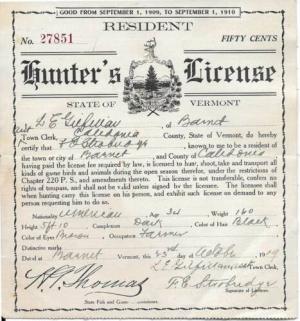 GOOD FROM SEPTEMBER 1, 1909, TO SEPTEMBER 1, 1910
RESIDENT
No. 27851
FIFTY CENTS
Hunter's License
STATE OF VERMONT
of Barnet
Town Clerk, Caledonia County, State of Vermont, do hereby
certify that known to me to be a resident of
the town or city of Barnet and County of Caledonia
having paid the license fee required by law, is licensed to hunt, shoot, take and transport all
kinds of game birds and animals during the open season therefor, under the restrictions of
Chapter 220 P. S. and amendments thereto. This license is not transferable, confers no
rights of trespass, and shall not be valid unless signed by the licensee. The licensee shall
when hunting carry this license on his person, and exhibit such license on demand to any
person requesting him to do so.
Nationality American Age 34 Weight 160
Height 5ft 10 Complexion Dark Color of Hair Black
Color of Eyes Brown Occupation Farmer
Distinctive marks
Dated at Barnet Vermont, this 23rd day of 1909
Town Clerk.
State Fish and Game
Signature of Licensee.